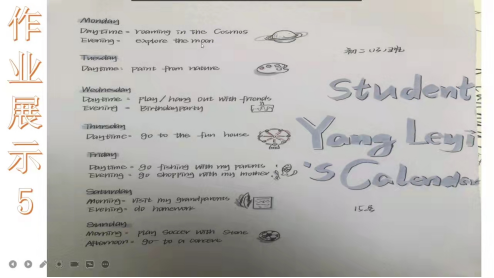 作业展示5
Monday
Daytime - roaming in the Cosmos
Evening - explore the moon
Tuesday
Daytime - paint from nature
Wednesday
Daytime - play/hang out with friends
Evening = Birthday party
Thursday
Daytime - go to the fun house
Friday
Daytime - go fishing with my parents
Evening - go shopping with my mother
Saturday
Morning - visit my grandparents
Evening - do homework
Sunday
Morning - play soccer with
Afternoon - go to a concert
初二
Student
Yang Leyi
's Calender